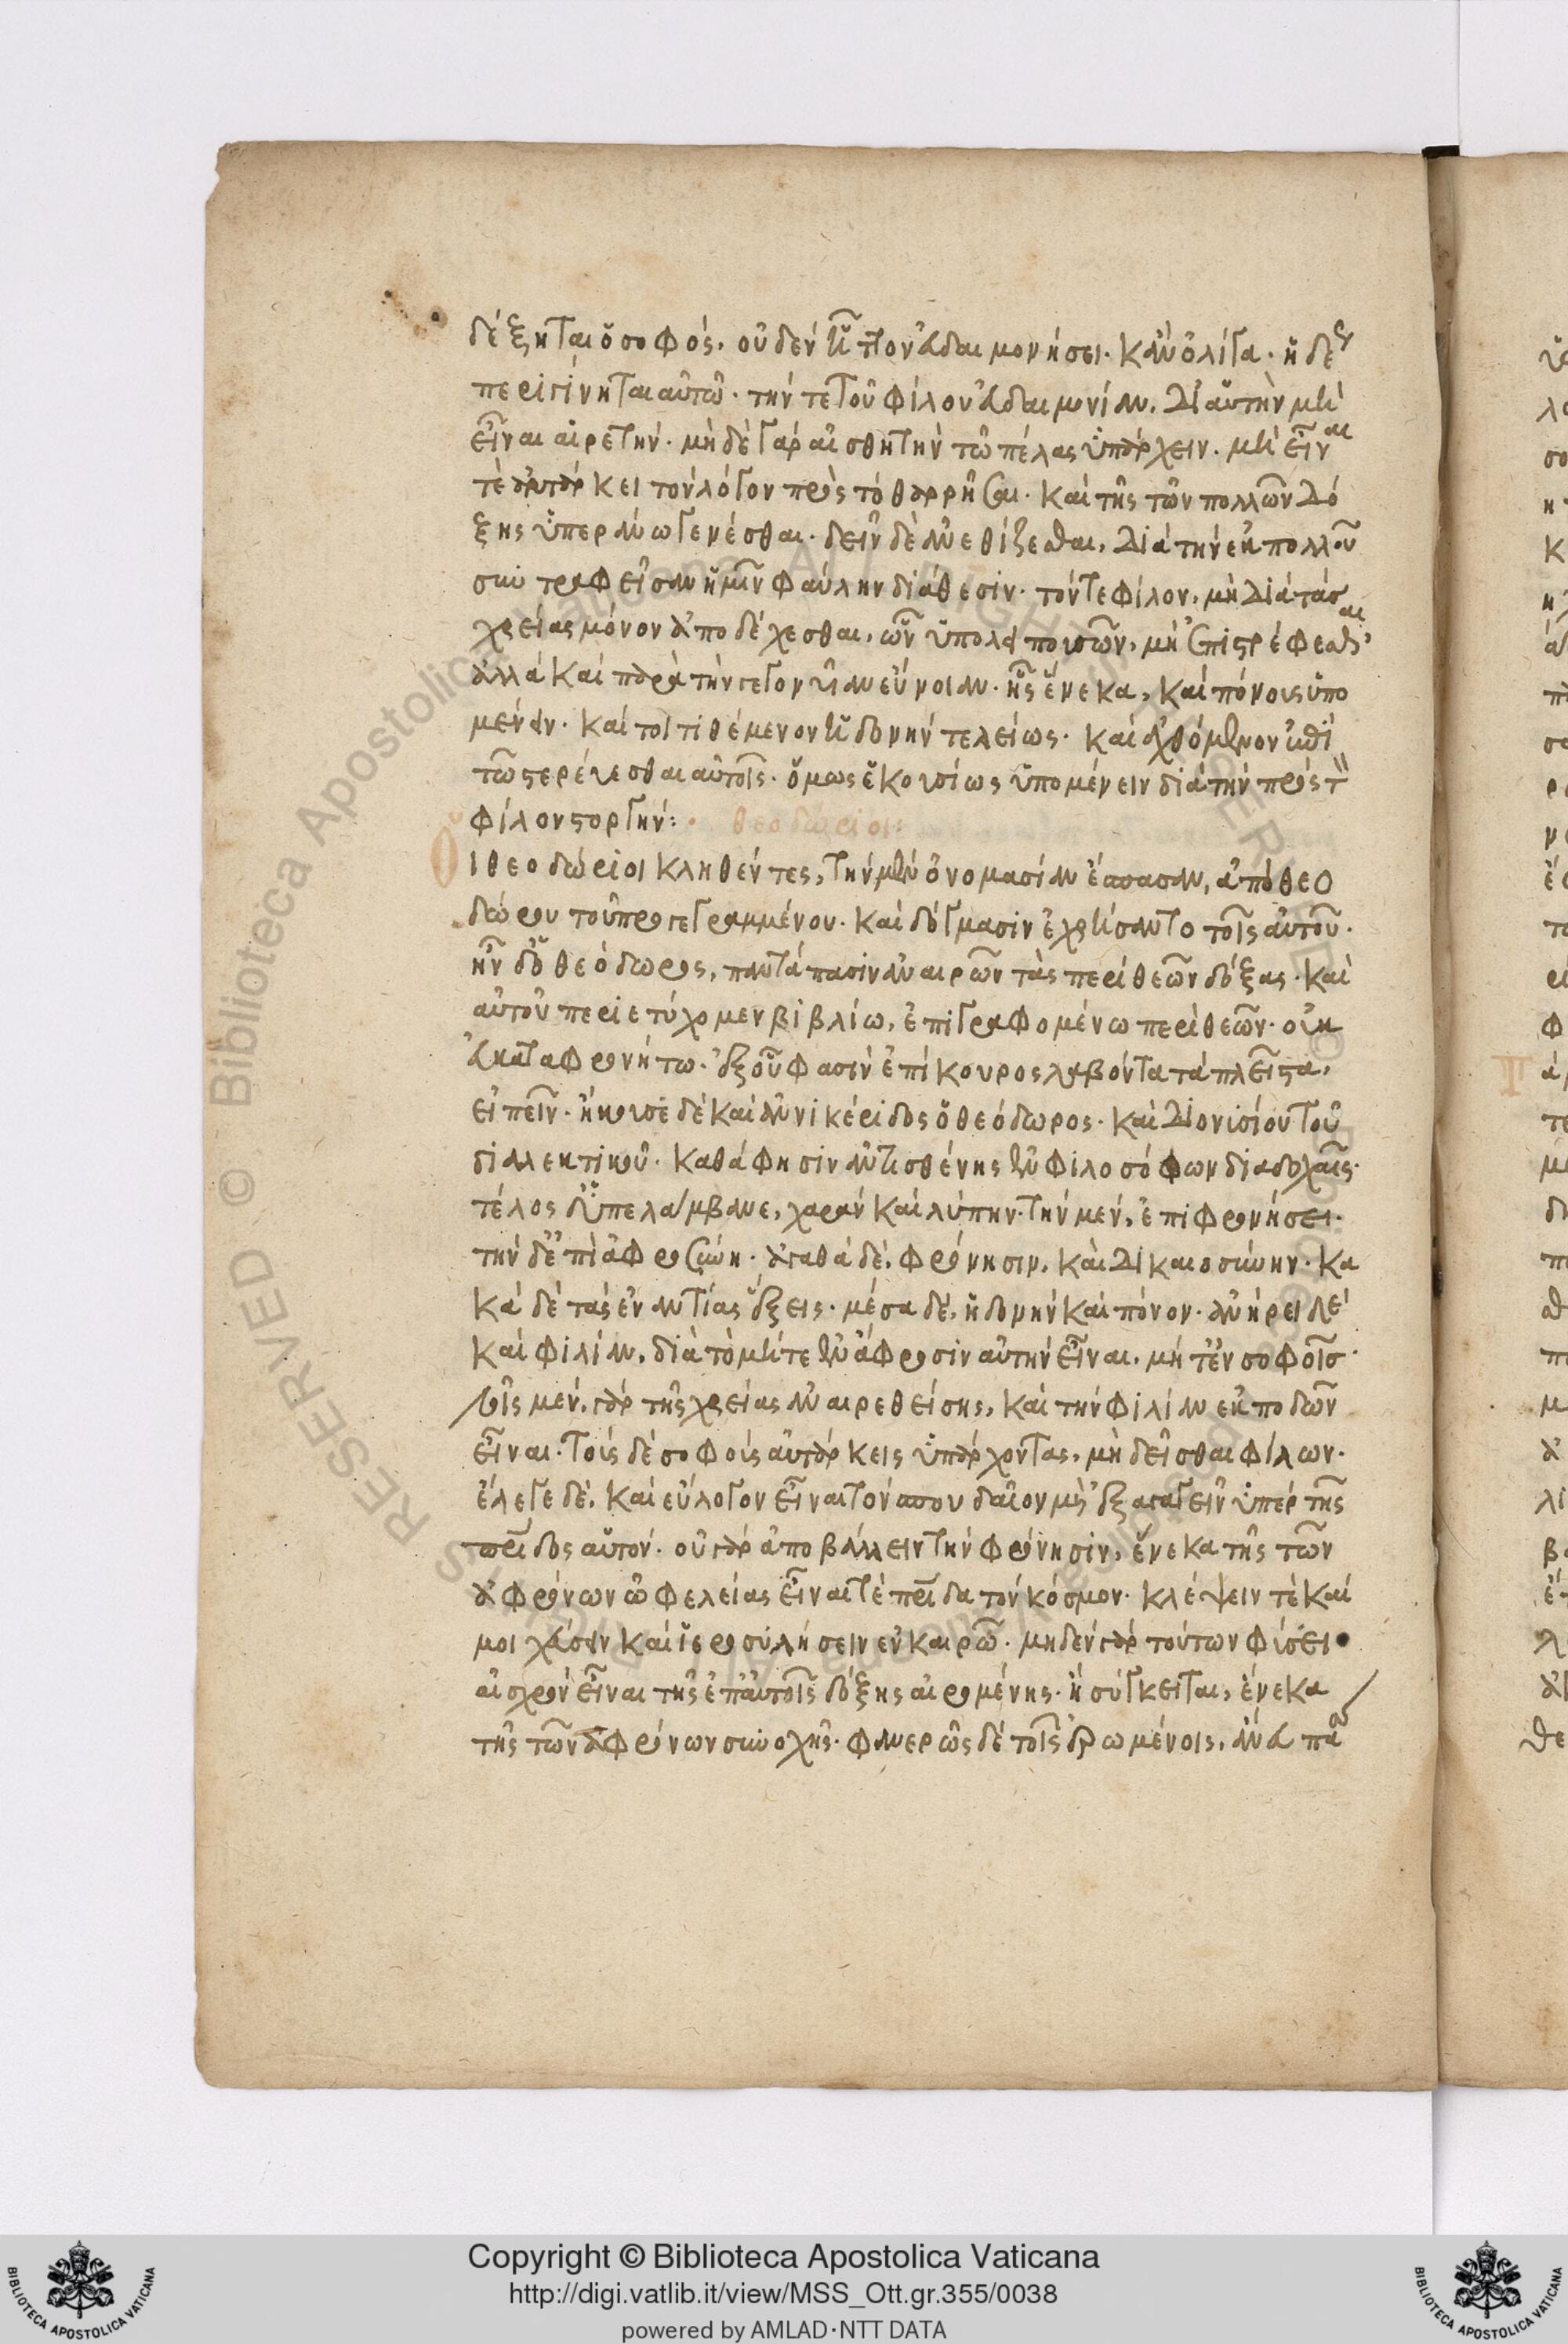 δέξηται ὁ σοφός. οὐδὲν ἧττον εὐδαιμονήσει. κἂν ὀλίγα. ἡδέα
περιγίνηται αὐτῶ. τήν τε τοῦ φίλου εὐδαιμονίαν. δι' αὑτὴν μὴ
εἶναι αἱρετήν. μὴ δὲ γὰρ αἰσθητὴν τῶ πέλας ὑπάρχειν. μὴ εἶναι
τὲ αὐτάρκει τὸν λόγον πρὸς τὸ θαρρῆσαι. καὶ τῆς τῶν πολλῶν δό
ξης ὑπεράνω γενέσθαι. δεῖν δὲ ἀνεθίζεσθαι. διὰ τὴν ἐκ πολλοῦ
συντραφεῖσαν ἡμῖν φαύλην διάθεσιν. τόν τε φίλον. μὴ διὰ τὰς
χρείας μόνον ἀποδέχεσθαι. ὧν ὑπολειπουσῶν, μὴ ἐπιστρέφεσθαι,
ἀλλὰ καὶ παρὰ τὴν γεγονυῖαν εὔνοιαν. ἧς ἕνεκα, καὶ πόνους ὑπο
μένειν. καί τοι τιθέμενον ἡδονὴν τέλος. καὶ ἀχθόμενον ἐπὶ
τῶ στερέσθαι αὐτοῖς. ὅμως ἑκουσίως ὑπομένειν διὰ τὴν πρὸς τὸν
φίλον στοργήν:
θεοδώρειοι:
Οἱ θεοδώρειοι κληθέντες, τὴν μὲν ὀνομασίαν ἔσπασαν, ἀπὸ θεο
δώρου τοῦ προγεγραμμένου. καὶ δόγμασιν ἐχρήσαντο τοῖς αὐτοῦ.
ἦν δ' ὁ θεόδωρος, παντάπασιν ἀναιρῶν τὰς περὶ θεῶν δόξας. καὶ
αὐτοῦ περιετύχομεν βιβλίω, ἐπιγραφομένω περὶ θεῶν. οὐκ
εὐκαταφρονήτω. ἐξ οὗ φασὶν ἐπίκουρος λαβόντα τὰ πλεῖστα,
εἰπεῖν. ἤκουσε δὲ καὶ ἀννικέριδος ὁ θεόδωρος. καὶ διονισίου τοῦ
διαλεκτικοῦ. καθά φησιν ἀντισθένης ἐν φιλοσόφων διαδοχαῖς.
τέλος δ' ὑπελάμβανε, χαρὰν καὶ λύπην. τὴν μὲν, ἐπὶ φρονήσει.
τὴν δ' ἐπὶ ἀφροσύνη. ἀγαθὰ δὲ, φρόνησιν, καὶ δικαιοσύνην. κα
κὰ δὲ τὰς ἐναντίας ἕξεις. μέσα δὲ, ἡδονὴν καὶ πόνον. ἀνήρει δὲ
καὶ φιλίαν, διὰ τὸ μήτε ἐν ἄφροσιν αὐτὴν εἶναι, μήτ' ἐν σοφοῖς.
τοῖς μὲν, γὰρ τῆς χρείας ἀναιρεθείσης, καὶ τὴν φιλίαν ἐκποδὼν
εἶναι. τοὺς δὲ σοφοὺς αὐτάρκεις ὑπάρχοντας, μὴ δεῖσθαι φίλων.
ἔλεγε δὲ, καὶ εὔλογον εἶναι τὸν σπουδαῖον μὴ ἐξαγαγεῖν ὑπὲρ τῆς
πατρίδος αὑτόν. οὐ γὰρ ἀποβάλλειν τὴν φρόνησιν, ἕνεκα τῆς τῶν
ἀφρόνων ὠφελείας εἶναί τε πατρίδα τὸν κόσμον. κλέψειν τὲ καὶ
μοιχεύσειν καὶ ἱεροσύλήσειν ἐν καιρῶ. μηδὲν γὰρ τούτων φύσει
αἰσχρὸν εἶναι τῆς ἐπ' αὐτοῖς δόξης αἰρομένης. ἣ σύγκειται, ἕνεκα
τῆς τῶν ἀφρόνων συνοχῆς. φανερῶς δὲ τοῖς ἐρωμένοις, ἄνευ πά
Copyright © Biblioteca Apostolica Vaticana
http://digi.vatlib.it/view/MSS_Ott.gr.355/0038
powered by AMLAD·NTT DATA